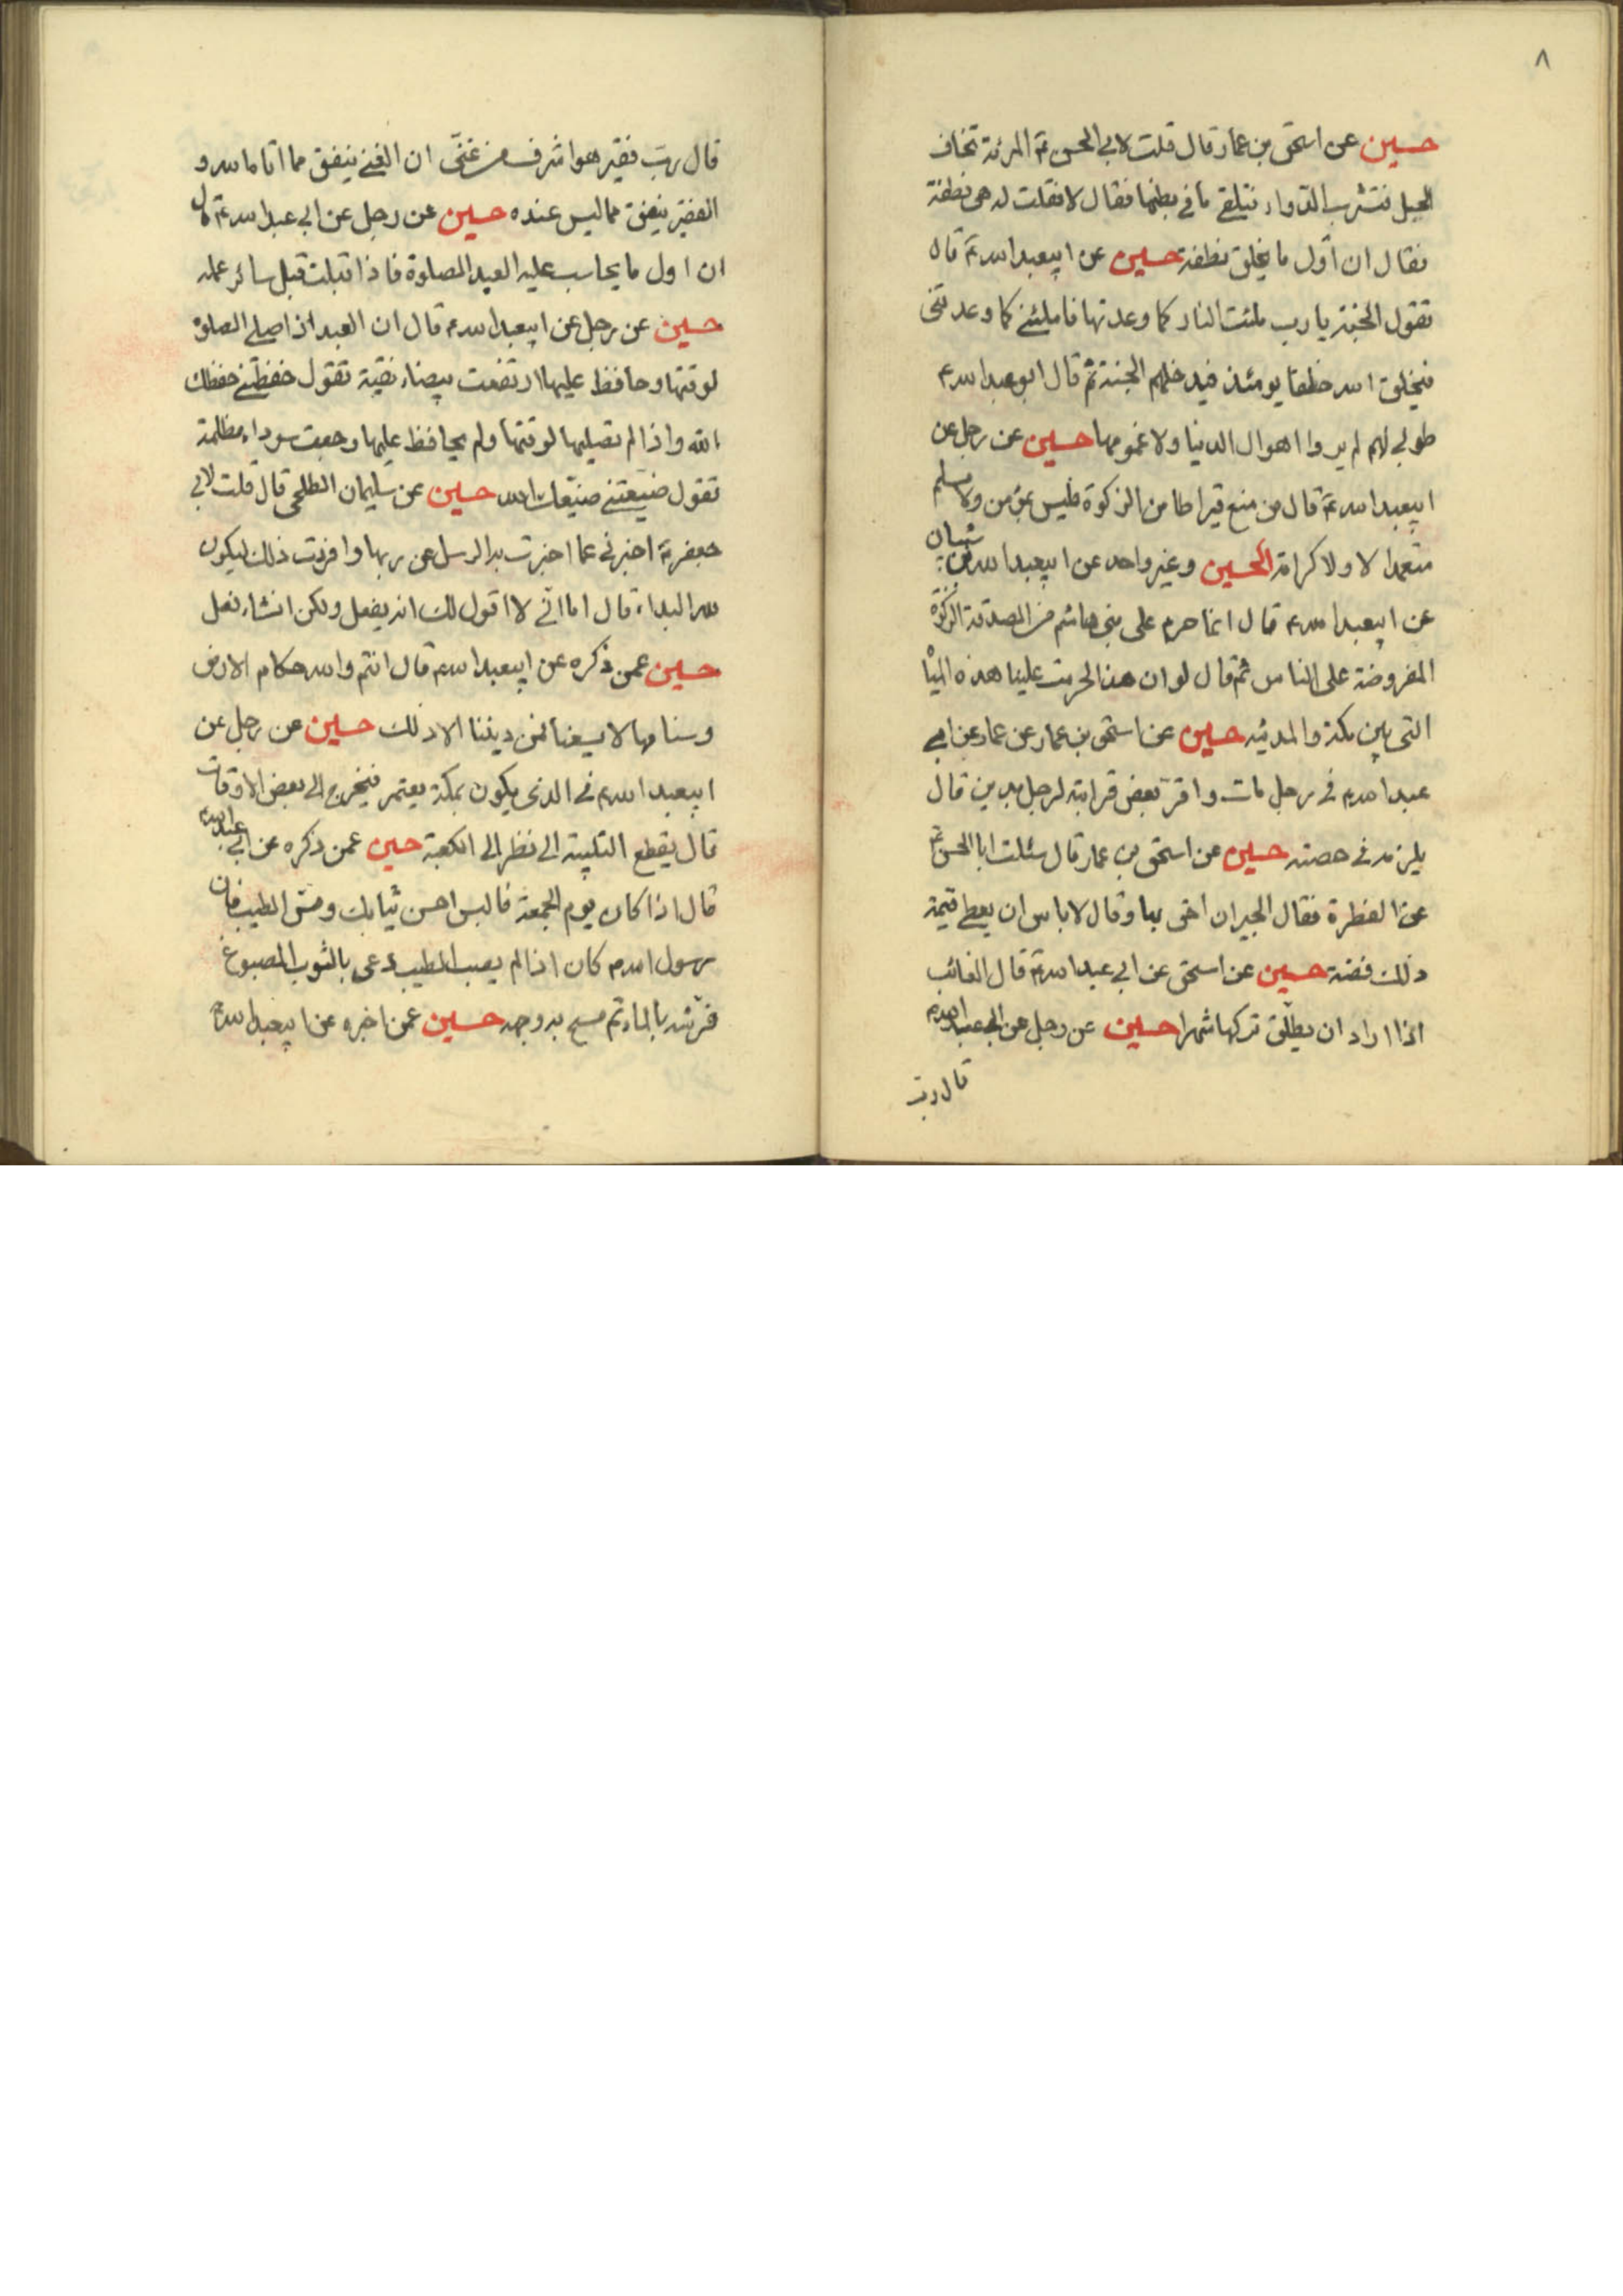 ٨
حسين عن اسحق بن عمار قال قلت لابي الحسن ع المرئة تخاف
الحبل فتشرب الدواء فتلقي ما في بطنها فقال لا فقلت له هى نطفة
فقال ان اول ما يخلق نطفة حسين عن ابيعبد الله ع قال
تقول الجنة يا رب ملئت النار كما وعدتها فاملئنى كما وعدتنى
فيخلق الله خلقا يومئذ فيدخلهم الجنة ثم قال ابو عبد الله ع
طوبى لهم لم يروا اهوال الدنيا ولا غمومها حسين عن رجل عن
ابيعبد الله ع قال من منع قيراطا من الزكوة فليس بمؤمن ولا مسلم
متعمدا لا ولا كرامة الحسين وغير واحد عن ابيعبد الله
عن ابيعبد الله ع قال انما حرم على بنى هاشم من الصدقة الزكوة
المفروضة على الناس ثم قال لو ان هذا لحرمت علينا هذه المياه
التى بين مكة والمدينه حسين عن اسحق بن عمار عن عمار عن ابى
عبد الله ع فى رجل مات واقر بعض قرابته لرجل بدين قال
يلزمه فى حصته حسين عن اسحق بن عمار قال سئلت ابا الحسن ع
عن الفطرة فقال الجيران احق بها وقال لا باس ان يعطى قيمة
ذلك فضة حسين عن اسحق عن ابى عبد الله ع قال الغائب
اذا اراد ان يطلق تركها شهرا حسين عن رجل عن ابى عبد الله ع
قال رب
قال رب فقير هو اشرف من غنى ان الغنى ينفق مما اتاه الله و
الفقير ينفق مما ليس عنده حسين عن رجل عن ابى عبد الله ع قال
ان اول ما يحاسب عليه العبد الصلوة فاذا قبلت قبل سائر عمله
حسين عن رجل عن ابيعبد الله ع قال ان العبد اذا صلى الصلوة
لوقتها وحافظ عليها ارتفعت بيضاء نقية تقول حفظتنى حفظك
الله واذا لم تصليها لوقتها ولم يحافظ عليها رجعت سوداء مظلمة
تقول ضيعتنى ضيعك الله حسين عن سليمان الطلحى قال قلت لابى
جعفر ع اخبرنى عما اخبرت به الرسل عن ربها وانفذت ذلك ليكون
لله البداء قال اما انى لا اقول لك انه يفعل ولكن انشاء فعل
حسين عمن ذكره عن ابيعبد الله ع قال انتم والله حكام الارض
وسنامها لا يسعنا فى ديننا الا ذلك حسين عن رجل عن
ابيعبد الله ع فى الذى يكون بمكة يعتمر فيخرج الى بعض الاوقات
قال يقطع التلبية الى نظر الى الكعبة حسين عمن ذكره عن ابى عبد الله ع
قال اذا كان يوم الجمعة فالبس احسن ثيابك ومس الطيب فان
رسول الله ص كان اذا لم يصب الطيب دعى بالثوب المصبوغ
فرشه بالماء ثم مسح به وجهه حسين عمن اخبره عن ابيعبد الله ع